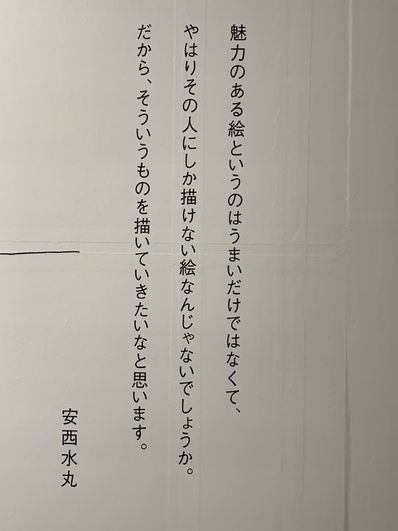 魅力のある絵というのはうまいだけではなくて、
やはりその人にしか描けない絵なんじゃないでしょうか。
だから、そういうものを描いていきたいなと思います。
安西水丸